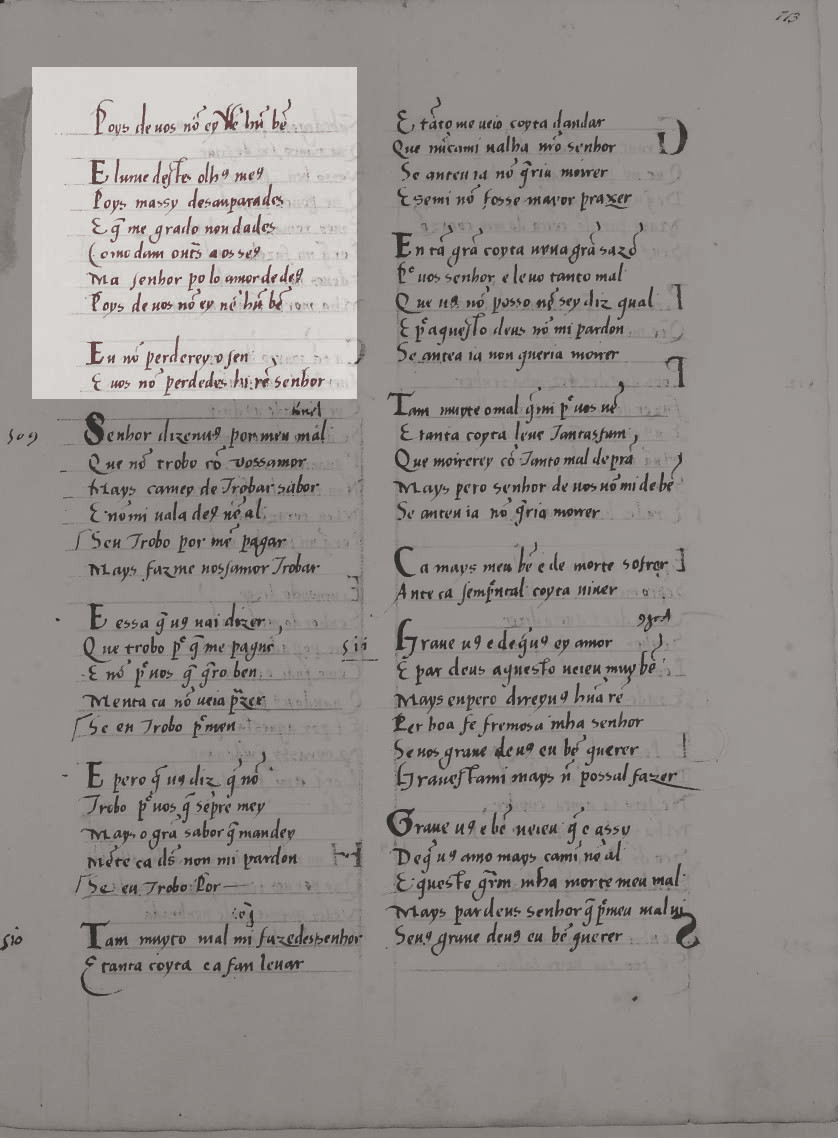 113
Poys de uos nō ey nē hũ bē
E lume destes olhꝯ meꝯ
Poys massy desanparades
E q̄ me grado non dades
Como dam outs̄ a os seꝯ
Ma senhor po lo amor de deꝯ
Poys de uos nō ey nē hũ bē
Eu nō perderey o sen
E uos nō perdedes hi rē senhor
509
Senhor dizenuꝯ por meu mal
Que nō trobo cō vossamor
Mays camey de Trobar sabor
E nō mi uala deꝯ nē al
Seu Trobo por mē pagar
Mays faz me uossamor Trobar
E essa q̄ uꝯ uai dizer
Que trobo pr̄ q̄ me pague
E nō pr̄ uos q̄ q̄ro ben
Menta ca nō ueia pr̄zer
Se eu Trobo pr̄ men
E pero q̄ uꝯ diz q̄ nō
Trobo pr̄ uos q̄ sēpre mey
Mays o grā sabor q̄ mandey
Mēte ca ds̄ non mi pardon
Se eu Trobo Por
510
Tam muyto mal mi fazedes senhor
E tanta coyta e afan leuar
E tāto me ueio coyta dandar
Que nūca mi ualha nr̄o senhor
Se anteu ia nō q̄ria morrer
E se mi nō fosse mayor prazer
En tā grā coyta uyua grā sazō
Pr̄ uos senhor e leuo tanto mal
Que uꝯ nō posso nē sey diz qual
E pr̄ aquesto deus nō mi pardon
Se antea ia non queria morrer
Tam muyte o mal q̄ mi pr̄ uos uē
E tanta coyta leue Tantasfam
Que moirerey cō Tanto mal de prā
Mays pero senhor de uos nō mi dē bē
Se anteu ia nō q̄ria morrer
Ca mays meu bē e de morte sofrer
Ante ca sempr̄ntal coyta uiuer
511
Graue uꝯ e de q̄ uꝯ ey amor
E par deus aquesto ueieu muy bē
Mays enpero direyuꝯ hũa rē
Per boa fe fremosa mha senhor
Se uos graue de uꝯ eu bē querer
Grauestami mays nō possal fazer
Graue uꝯ e bē ueieu q̄ e assy
De q̄ uꝯ amo mays cami nē al
E queste grām mha morte meu mal
Mays par deus senhor q̄ pr̄ meu mal ui
Seuꝯ graue deuꝯ eu bē querer